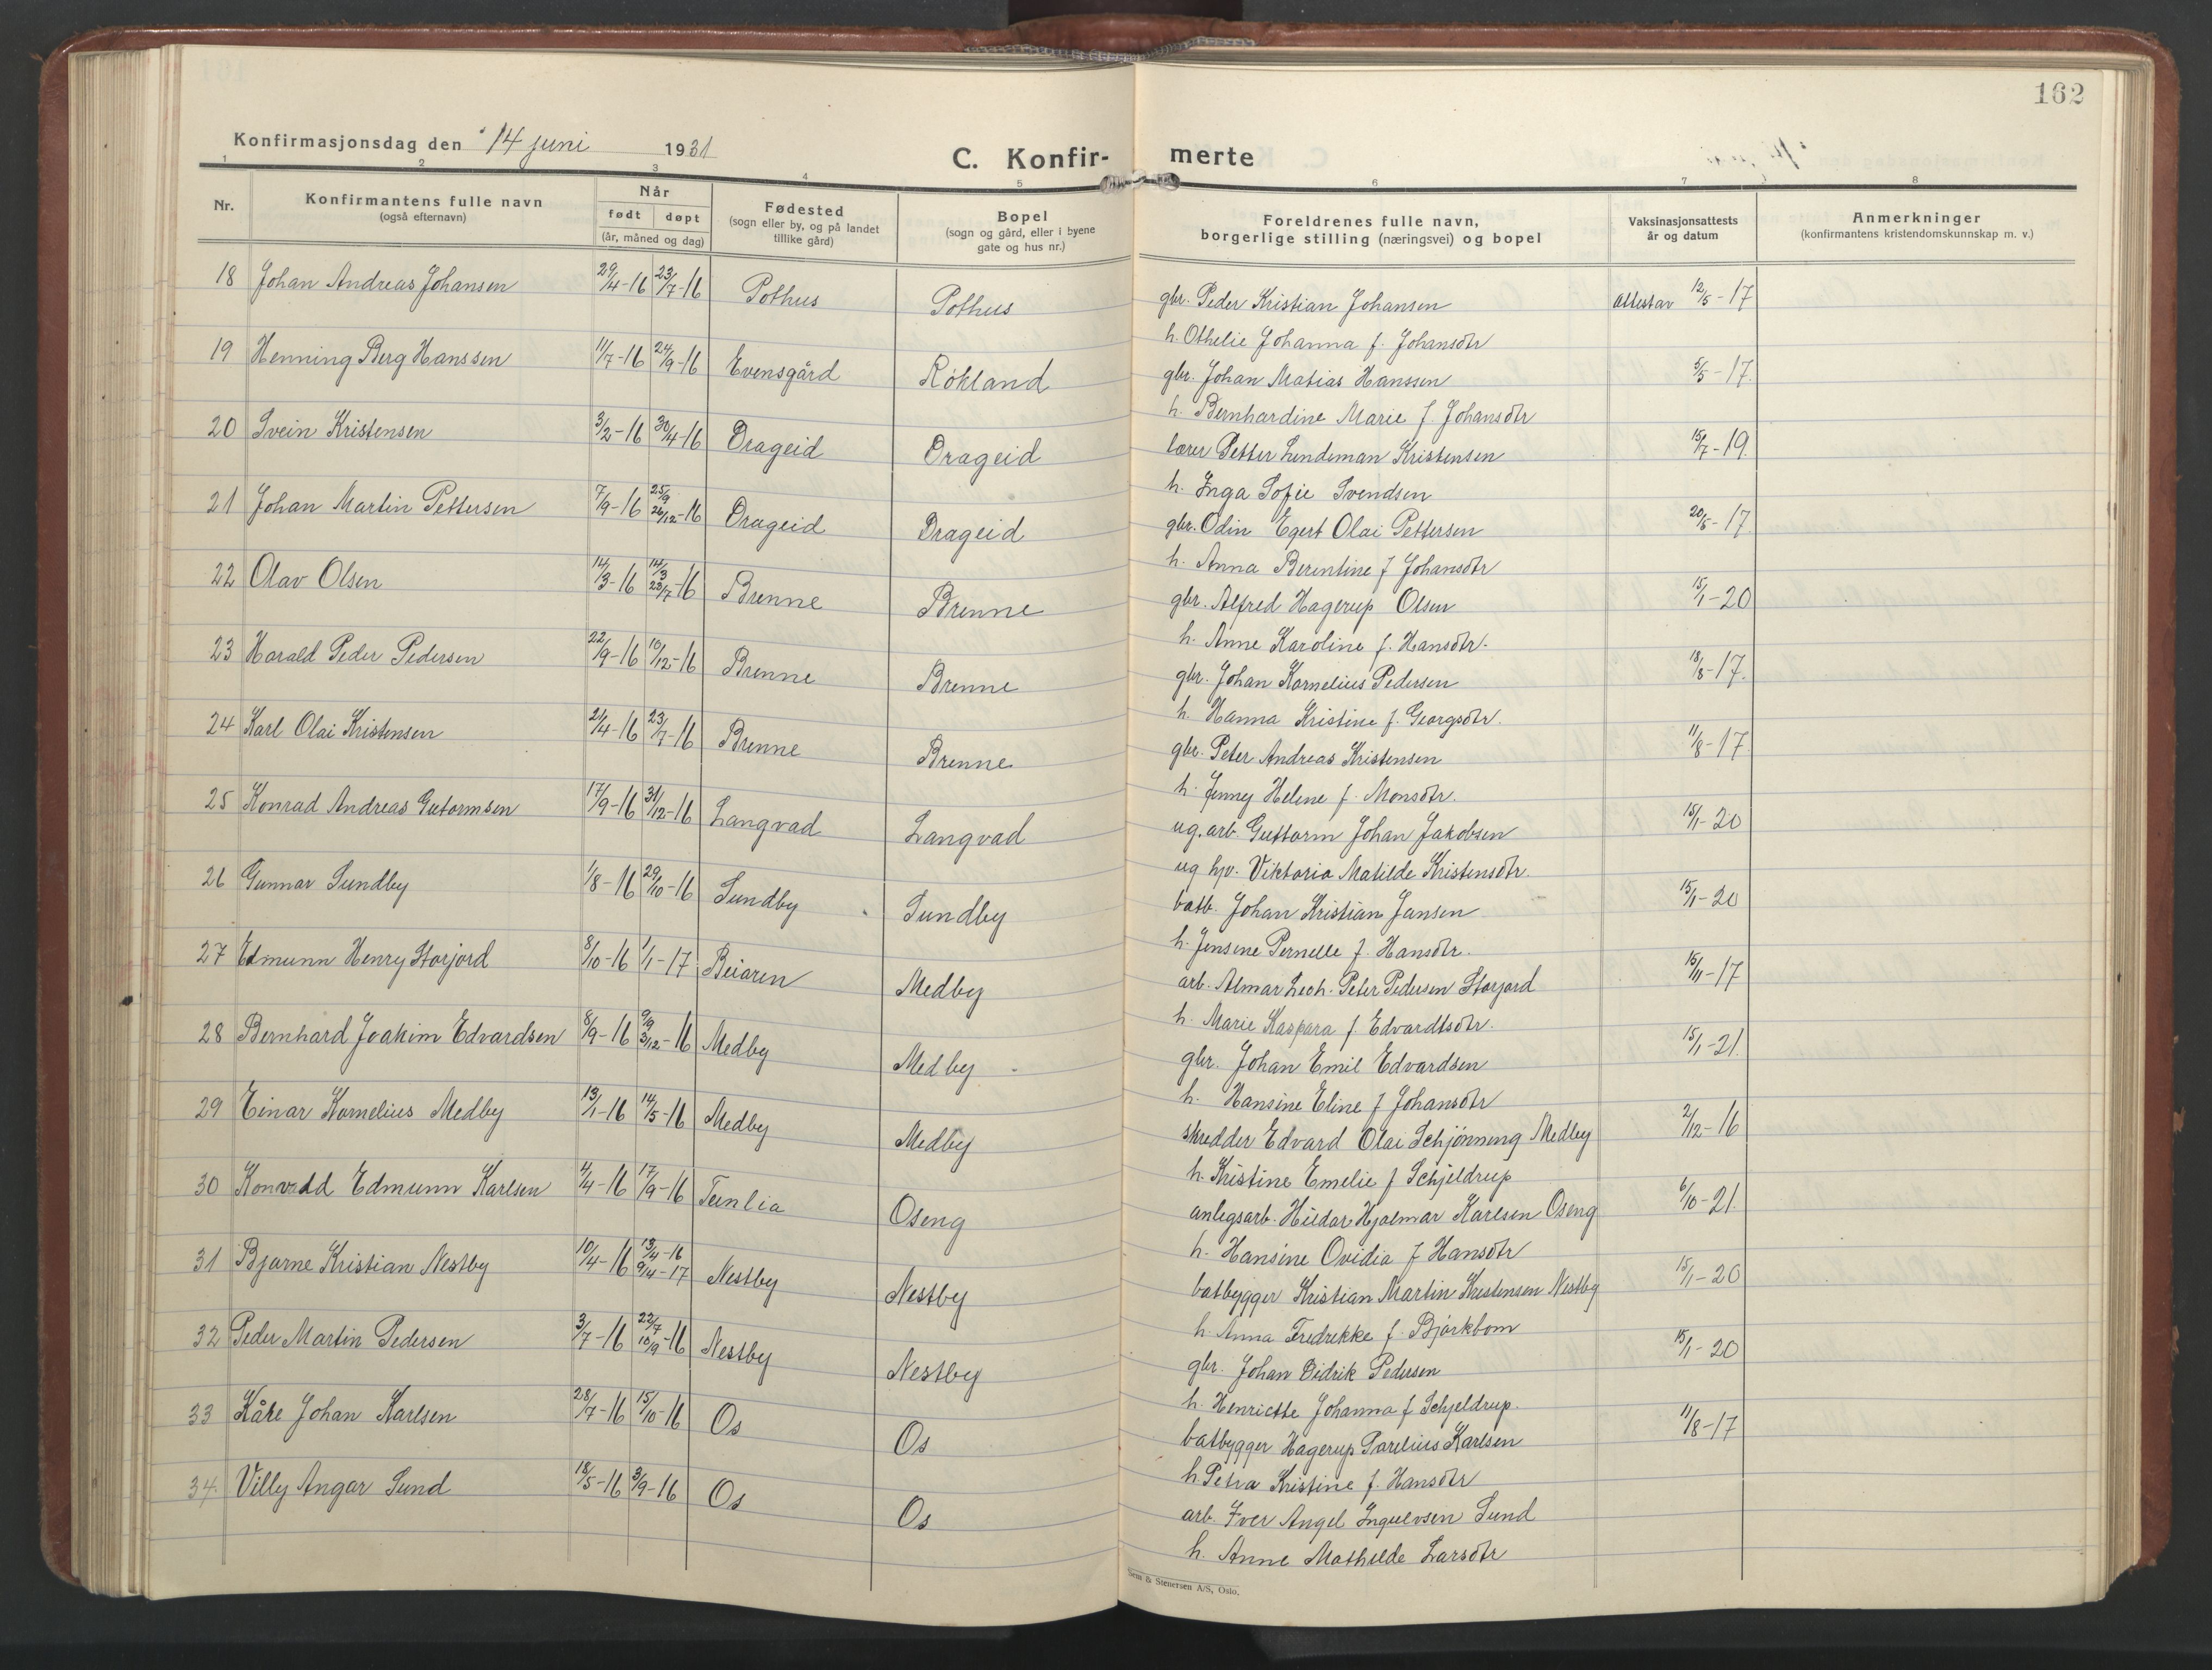 162
Konfirmasjonsdag den 14 juni 1931
C. Konfir- merte
1 2 3 4 5 6 7 8
Nr.
Konfirmantens fulle navn
(også efternavn)
Når
født døpt
(år, måned og dag)
Fødested
(sogn eller by, og på landet
tillike gård)
Bopel
(sogn og gård, eller i byene
gate og hus nr.)
Foreldrenes fulle navn,
borgerlige stilling (næringsvei) og bopel
Vaksinasjonsattests
år og datum
Anmerkninger
(konfirmantens kristendomskunnskap m. v.)
18 Johan Andreas Johansen 29/4-16 23/7-16 Pothus Pothus gbr. Peder Kristian Johansen 12/5-17
h. Othelie Johanna f. Johansdtr
19 Henning Berg Hanssen 11/7-16 24/9-16 Evensgård Rökland gbr. Johan Matias Hanssen 5/5-17.
h. Bernhardine Marie f. Johansdtr
20 Svein Kristensen 3/2-16 30/4-16 Drageid Drageid lærer Petter Lindeman Kristensen 15/7-19.
h. Inga Sofie Svendsen
21 Johan Martin Pettersen 7/9-16 25/9 26/12-16 Drageid Drageid gbr. Odin Egert Olai Pettersen 20/5-17.
h. Anna Berentine f Johansdtr
22 Olav Olsen 14/3-16 14/3 23/7-16 Brenne Brenne gbr. Alfred Hagerup Olsen 15/1-20
h. Anne Karoline f. Hansdtr.
23 Harald Peder Pedersen 22/9-16 10/12-16 Brenne Brenne gbr. Johan Kornelius Pedersen 18/8-17.
h. Hanna Kristine f. Georgsdtr.
24 Karl Olai Kristensen 21/4-16 23/7-16 Brenne Brenne gbr. Peter Andreas Kristensen 11/8-17.
h. Jenny Helene f. Monsdtr.
25 Konrad Andreas Gutormsen 17/9-16 31/12-16 Langvad Langvad ug. arb. Guttorm Johan Jakobsen 15/1-20
ug hjv. Viktoria Matilde Kristensdtr.
26 Gunnar Sundby 1/8-16 29/10-16 Sundby Sundby batb. Johan Kristian Jansen 15/1-20
h. Jensine Pernelle f. Hansdtr.
27 Edmunn Henry Storjord 8/10-16 1/1-17 Beiaren Medby arb. Almar Zech. Peter Pedersen Storjord 15/11-17
h. Marie Kaspara f. Edvardtsdtr.
28 Bernhard Joakim Edvardsen 8/9-16 9/9 3/12-16 Medby Medby gbr. Johan Emil Edvardsen 15/1-21.
h. Hansine Eline f Johansdtr
29 Einar Kornelius Medby 13/1-16 14/5-16 Medby Medby skredder Edvard Olai Schjønning Medby 2/12-16
h. Kristine Emelie f Schjeldrup
30 Edmunn Karlsen 4/4-16 17/9-16 Tunlia Oseng anlegsarb. Hildor Hjalmar Karlsen Oseng 6/10-21.
h. Hansine Ovidia f Hansdtr
31 Bjarne Kristian Nestby 10/4-16 13/4-16 9/4-17 Nestby Nestby batbygger Kristian Martin Kristensen Nestby 15/1-20
h. Anna Fredrikke f. Björkbom
32 Peder Martin Pedersen 3/7-16 22/7 10/9-16 Nestby Nestby gbr. Johan Didrik Pedersen 15/1-20
h. Henriette Johanna f Schjeldrup.
33 Kåre Johan Karlsen 28/7-16 15/10-16 Os Os batbygger Hagerup Parelius Karlsen 11/8-17
h Petra Kristine f. Hansdtr
34. Villy Angar Sund 18/5-16 3/9-16 Os Os arb. Iver Angel Ingvelvsen Sund
h. Anne Mathilde Larsdtr
Sem & Stenersen A/S, Oslo.